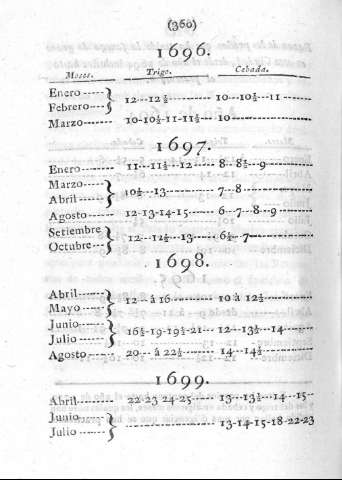 (360)
1696.
Meses. Trigo. Cebada.
Enero
Febrero } 12---12½ 10---10½---11
Marzo 10-10½-11-11½ 10
1697.
Enero 11---11½---12 8--8½--9
Marzo
Abril } 10½---13 7--8
Agosto 12-13-14-15 6--7--8--9
Setiembre
Octubre } 12--12½--13 6½-7
1698.
Abril
Mayo } 12 -- á 16 10 á 12½
Junio
Julio } 16½-19-19½-21 12---13½---14
Agosto 20-- á 22½ 14--14½
1699.
Abril 22-23 24-25 13--13½--14--15
Junio
Julio } 13-14-15-18-22-23